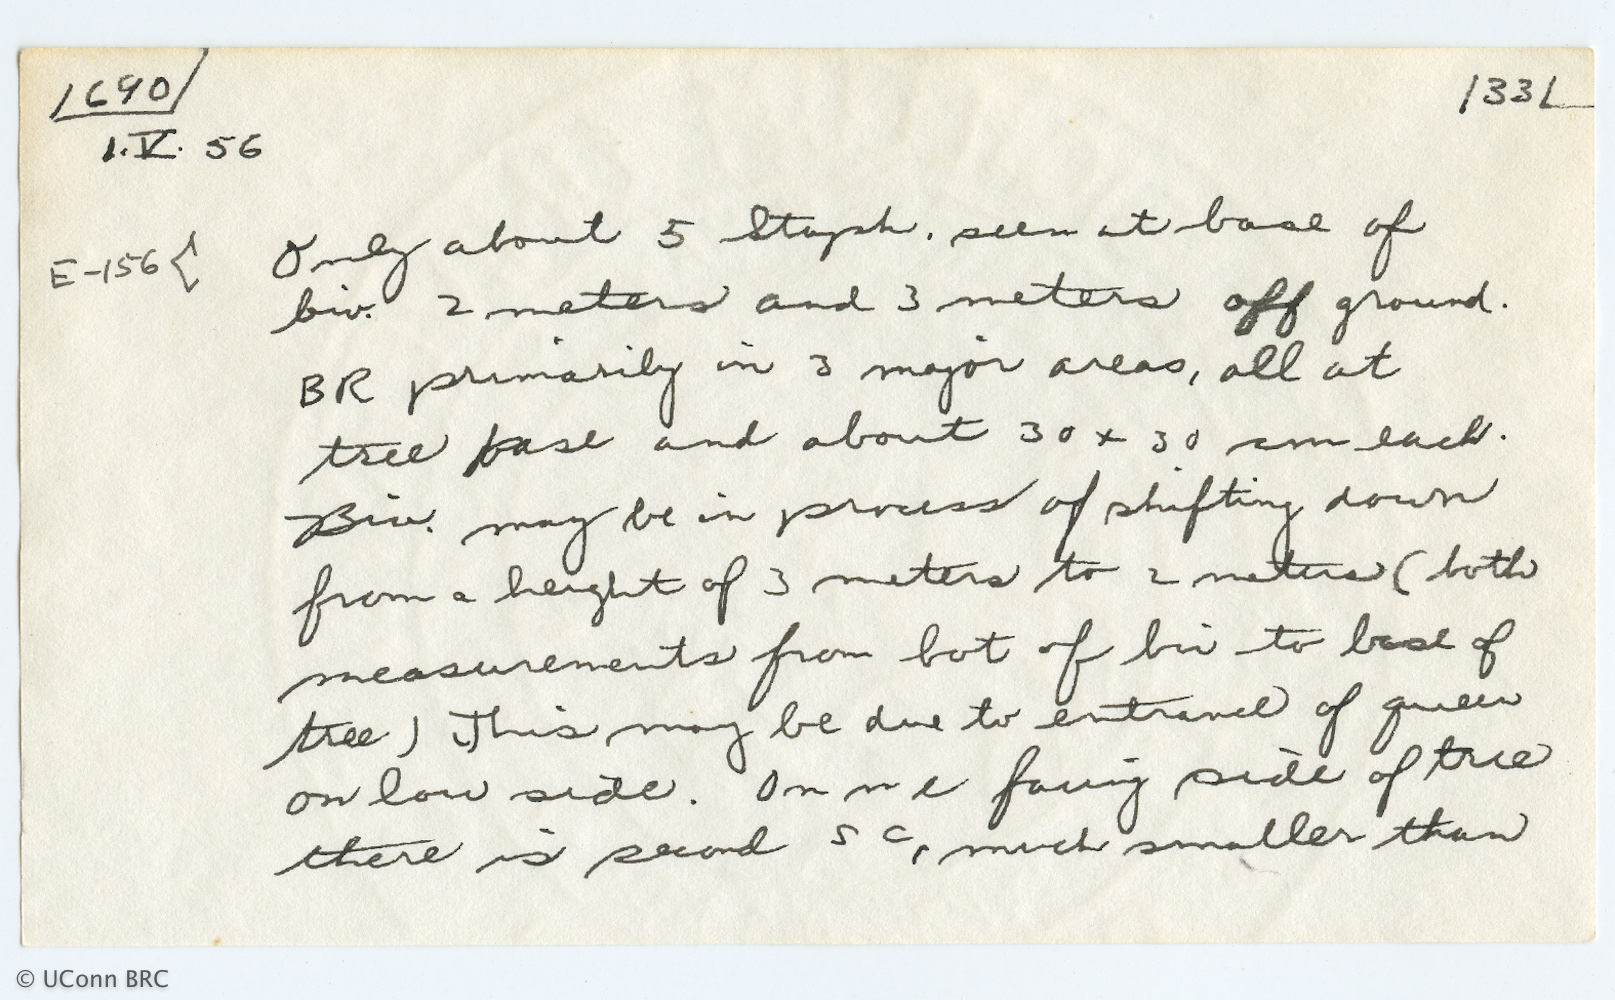 1690
1331
1.V. 56
E-156 {
Only about 5 Staph. seen at base of
biv. 2 meters and 3 meters off ground.
BR primarily in 3 major areas, all at
tree base and about 30 x 30 cm each.
Biv. may be in process of shifting down
from a height of 3 meters to 2 meters (both
measurements from bot of biv to base of
tree) This may be due to entrance of queen
on low side. On n e facing side of tree
there is second S C, much smaller than
© UConn BRC